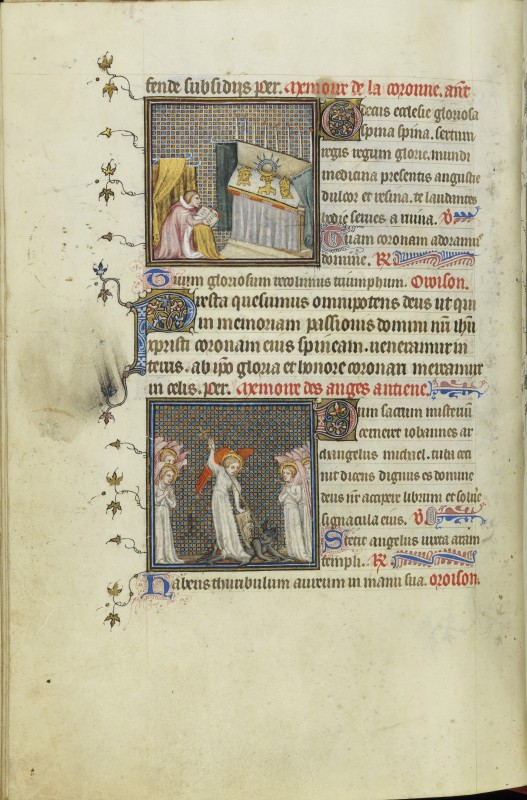 fende subsidiis Per. Memoire de la coronne. ant
Decus ecclesie gloriosa
spina spina. sertum
regis regum glorie. mundi
medicina presentis angustie
dulcor et resina. te laudantes
Tuam coronam adoramus
domine. R
Tuum gloriosum recolimus triumphum. Oroison.
Presta quesumus omnipotens deus ut qui
in memoriam passionis domini nri ihu
christi coronam eius spineam. veneramur in
terris. ab ipo gloria et honore coronari mereamur
in celis. Per. Memoire des anges antiene.
Dum sacrum misterium
cerneret iohannes ar
changelus michael. tuba ceci
nit dicens dignus es domine
deus nr accipere librum et soluere
signacula eius. V
Stetit angelus iuxta aram
templi. R
Habens thuribulum aureum in manu sua. oroison.